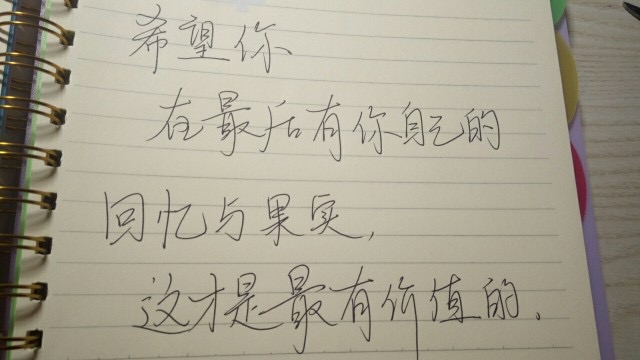 希望你
在最后有你自己的
回忆与果实,
这才是最有价值的.